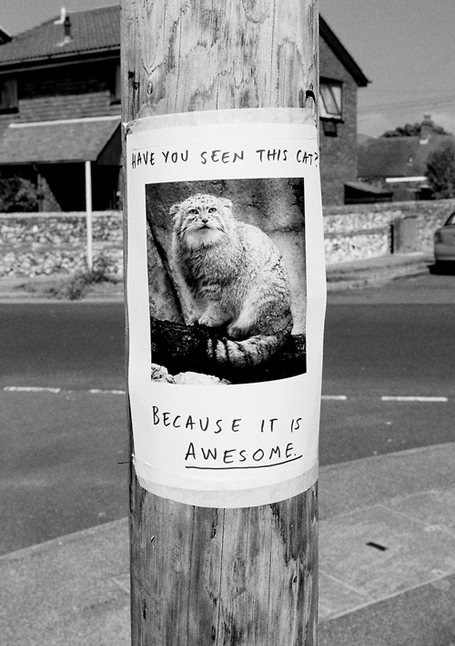 HAVE YOU SEEN THIS CAT?
BECAUSE IT IS
AWESOME.